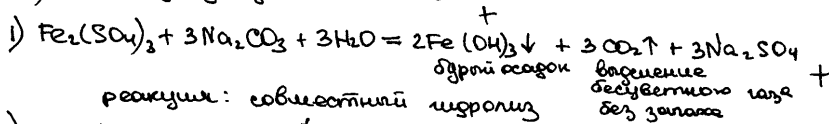 +
1) Fe₂(SO₄)₃ + 3Na₂CO₃ + 3H₂O = 2Fe(OH)₃↓ + 3CO₂↑ + 3Na₂SO₄
бурый осадок выделение +
бесцветного газа
реакция: совместный гидролиз без запаха